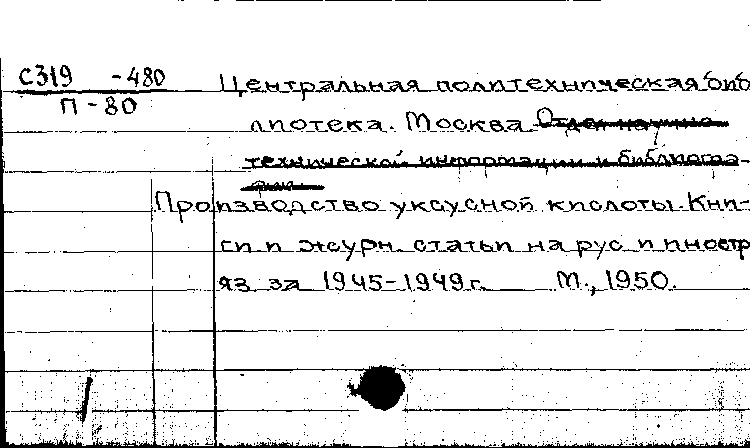 С319 -480
П-80
Центральная политехническая биб
лиотека. Москва. Отдел научно
технической информации и библиогра-
фии.
Производство уксусной кислоты. Кни-
ги и журн. статьи на рус и иностр
яз за 1945-1949г. М., 1950.